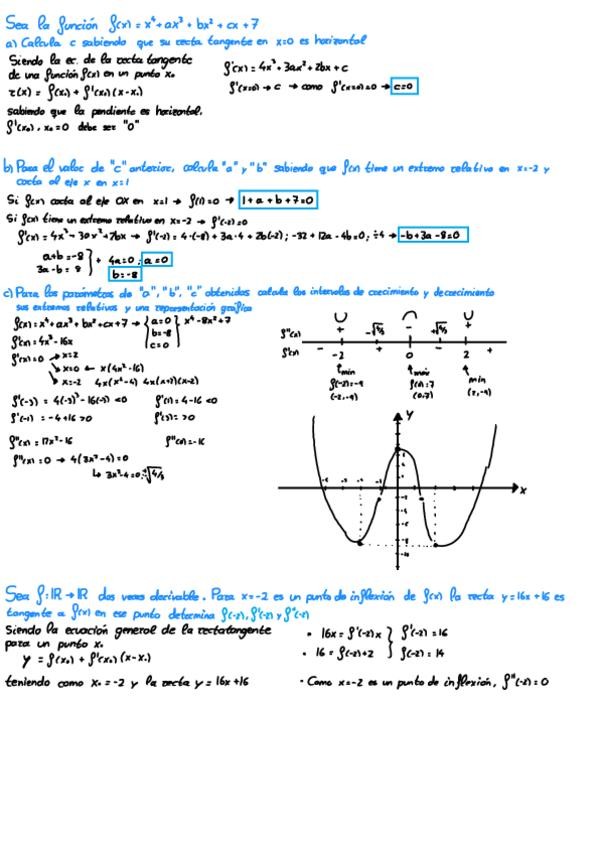 Sea la función f(x) = x⁴ + ax³ + bx² + cx + 7
a) Calcula c sabiendo que su recta tangente en x=0 es horizontal
Siendo la ec. de la recta tangente
de una función f(x) en un punto x₀
r(x) = f(x₀) + f'(x₀)(x-x₀)
sabiendo que la pendiente es horizontal.
f'(x₀), x₀=0 debe ser "0"
f'(x) = 4x³ + 3ax² + 2bx + c
f'(x=0) → c → como f'(x=0)=0 → c=0
b) Para el valor de "c" anterior, calcula "a" y "b" sabiendo que f(x) tiene un extremo relativo en x=-2 y
corta al eje x en x=1
Si f(x) corta al eje OX en x=1 → f(1)=0 → 1+a+b+7=0
Si f(x) tiene un extremo relativo en x=-2 → f'(-2)=0
-b+3a-8=0
a+b=-8
3a-b=8
+ 4a=0; a=0
b=-8
c) Para los parámetros de "a", "b", "c" obtenidos calcula los intervalos de crecimiento y decrecimiento
sus extremos relativos y una representación gráfica
f(x) = x⁴ + ax³ + bx² + cx + 7 → a=0 b=-8 c=0 x⁴-8x²+7
f'(x) = 4x³-16x
f'(x)=0 → x=2
x=0 ← x(4x²-16)
x=-2 4x(x²-4) 4x(x+2)(x-2)
f'(-3) = 4(-3)³-16(-3) <0 f'(1) = 4-16 <0
f'(-1) = -4+16 >0 f'(3) = >0
f''(0)=-16
f''(x)=0 → 4(3x²-4)=0
f''(x)
f'(x) - -2 + 0 - 2 +
min máx min
f(-2)=-9 f(0)=7 (2,-9)
(-2,-9) (0,7)
Y
X
Sea f: ℝ → ℝ dos veces derivable. Para x=-2 es un punto de inflexión de f(x) la recta y=16x+16 es
tangente a f(x) en ese punto determina f(-2), f'(-2) y f''(-2)
Siendo la ecuación general de la recta tangente
para un punto x₀
y = f(x₀) + f'(x₀)(x-x₀)
teniendo como x₀=-2 y la recta y=16x+16
• 16x = f'(-2)x } f'(-2)=16
• 16 = f(-2)+2 } f(-2)=14
• Como x=-2 es un punto de inflexión, f''(-2)=0